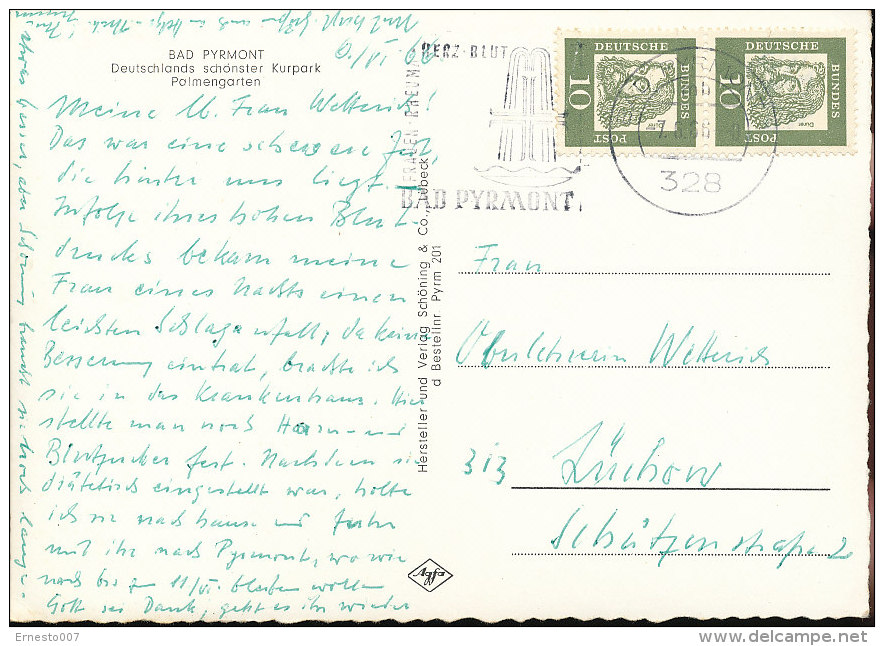 BAD PYRMONT
Deutschlands schönster Kurpark
Palmengarten
6/VI 66
Meine lb. Frau Wetterich!
Das war eine schwere Zeit,
die hinter uns liegt.
Infolge ihres hohen Blut-
drucks bekam meine
Frau eines Nachts einen
leichten Schlaganfall, da keine
Besserung eintrat, brachte ich
sie in das Krankenhaus. Hier
stellte man noch Harn- und
Blutzucker fest. Nachdem sie
diätetisch eingestellt war, holte
ich sie nach hause und fuhr
mit ihr nach Pyrmont, wo wir
noch bis zum 11/VI. bleiben wollen
Gott sei Dank, geht es ihr wieder
etwas besser, aber Schonung braucht sie noch lange.
Hersteller und Verlag Schöning & Co., Lübeck
Bestellnr. Pyrm 201
FRAUEN-RHEUMA
HERZ-BLUT
BAD PYRMONT
328
DEUTSCHE BUNDESPOST
10
Dürer
DEUTSCHE BUNDESPOST
10
Dürer
Frau
Oberlehrerin Wetterich
313 Lüchow
Schützenstraße 2
Agfa
Ernesto007
delcampe.net